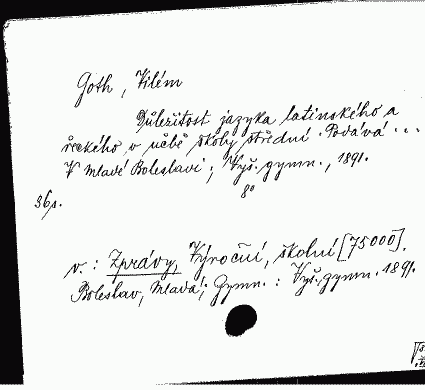 Goth, Vilém
Důležitost jazyka latinského a
řeckého v učbě školy střední. Podává ...
V Mladé Boleslavi; Vyš. gymn., 1891.
8°
36 s.
v.: Zprávy, Výroční, školní [75000].
Boleslav, Mladá; Gymn.: Vyš. gymn. 1891.